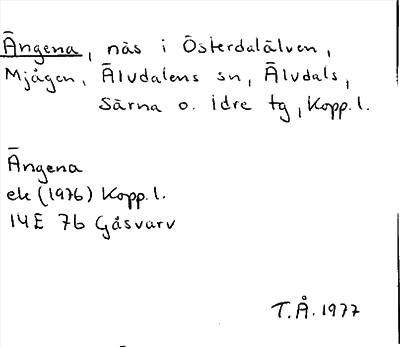 Ängena, näs i Österdalälven,
Mjågen, Älvdalens sn, Älvdals,
Särna o. Idre tg, Kopp. l.
Ängena
ek (1976) Kopp. l.
14E 7b Gåsvarv
T.Å. 1977